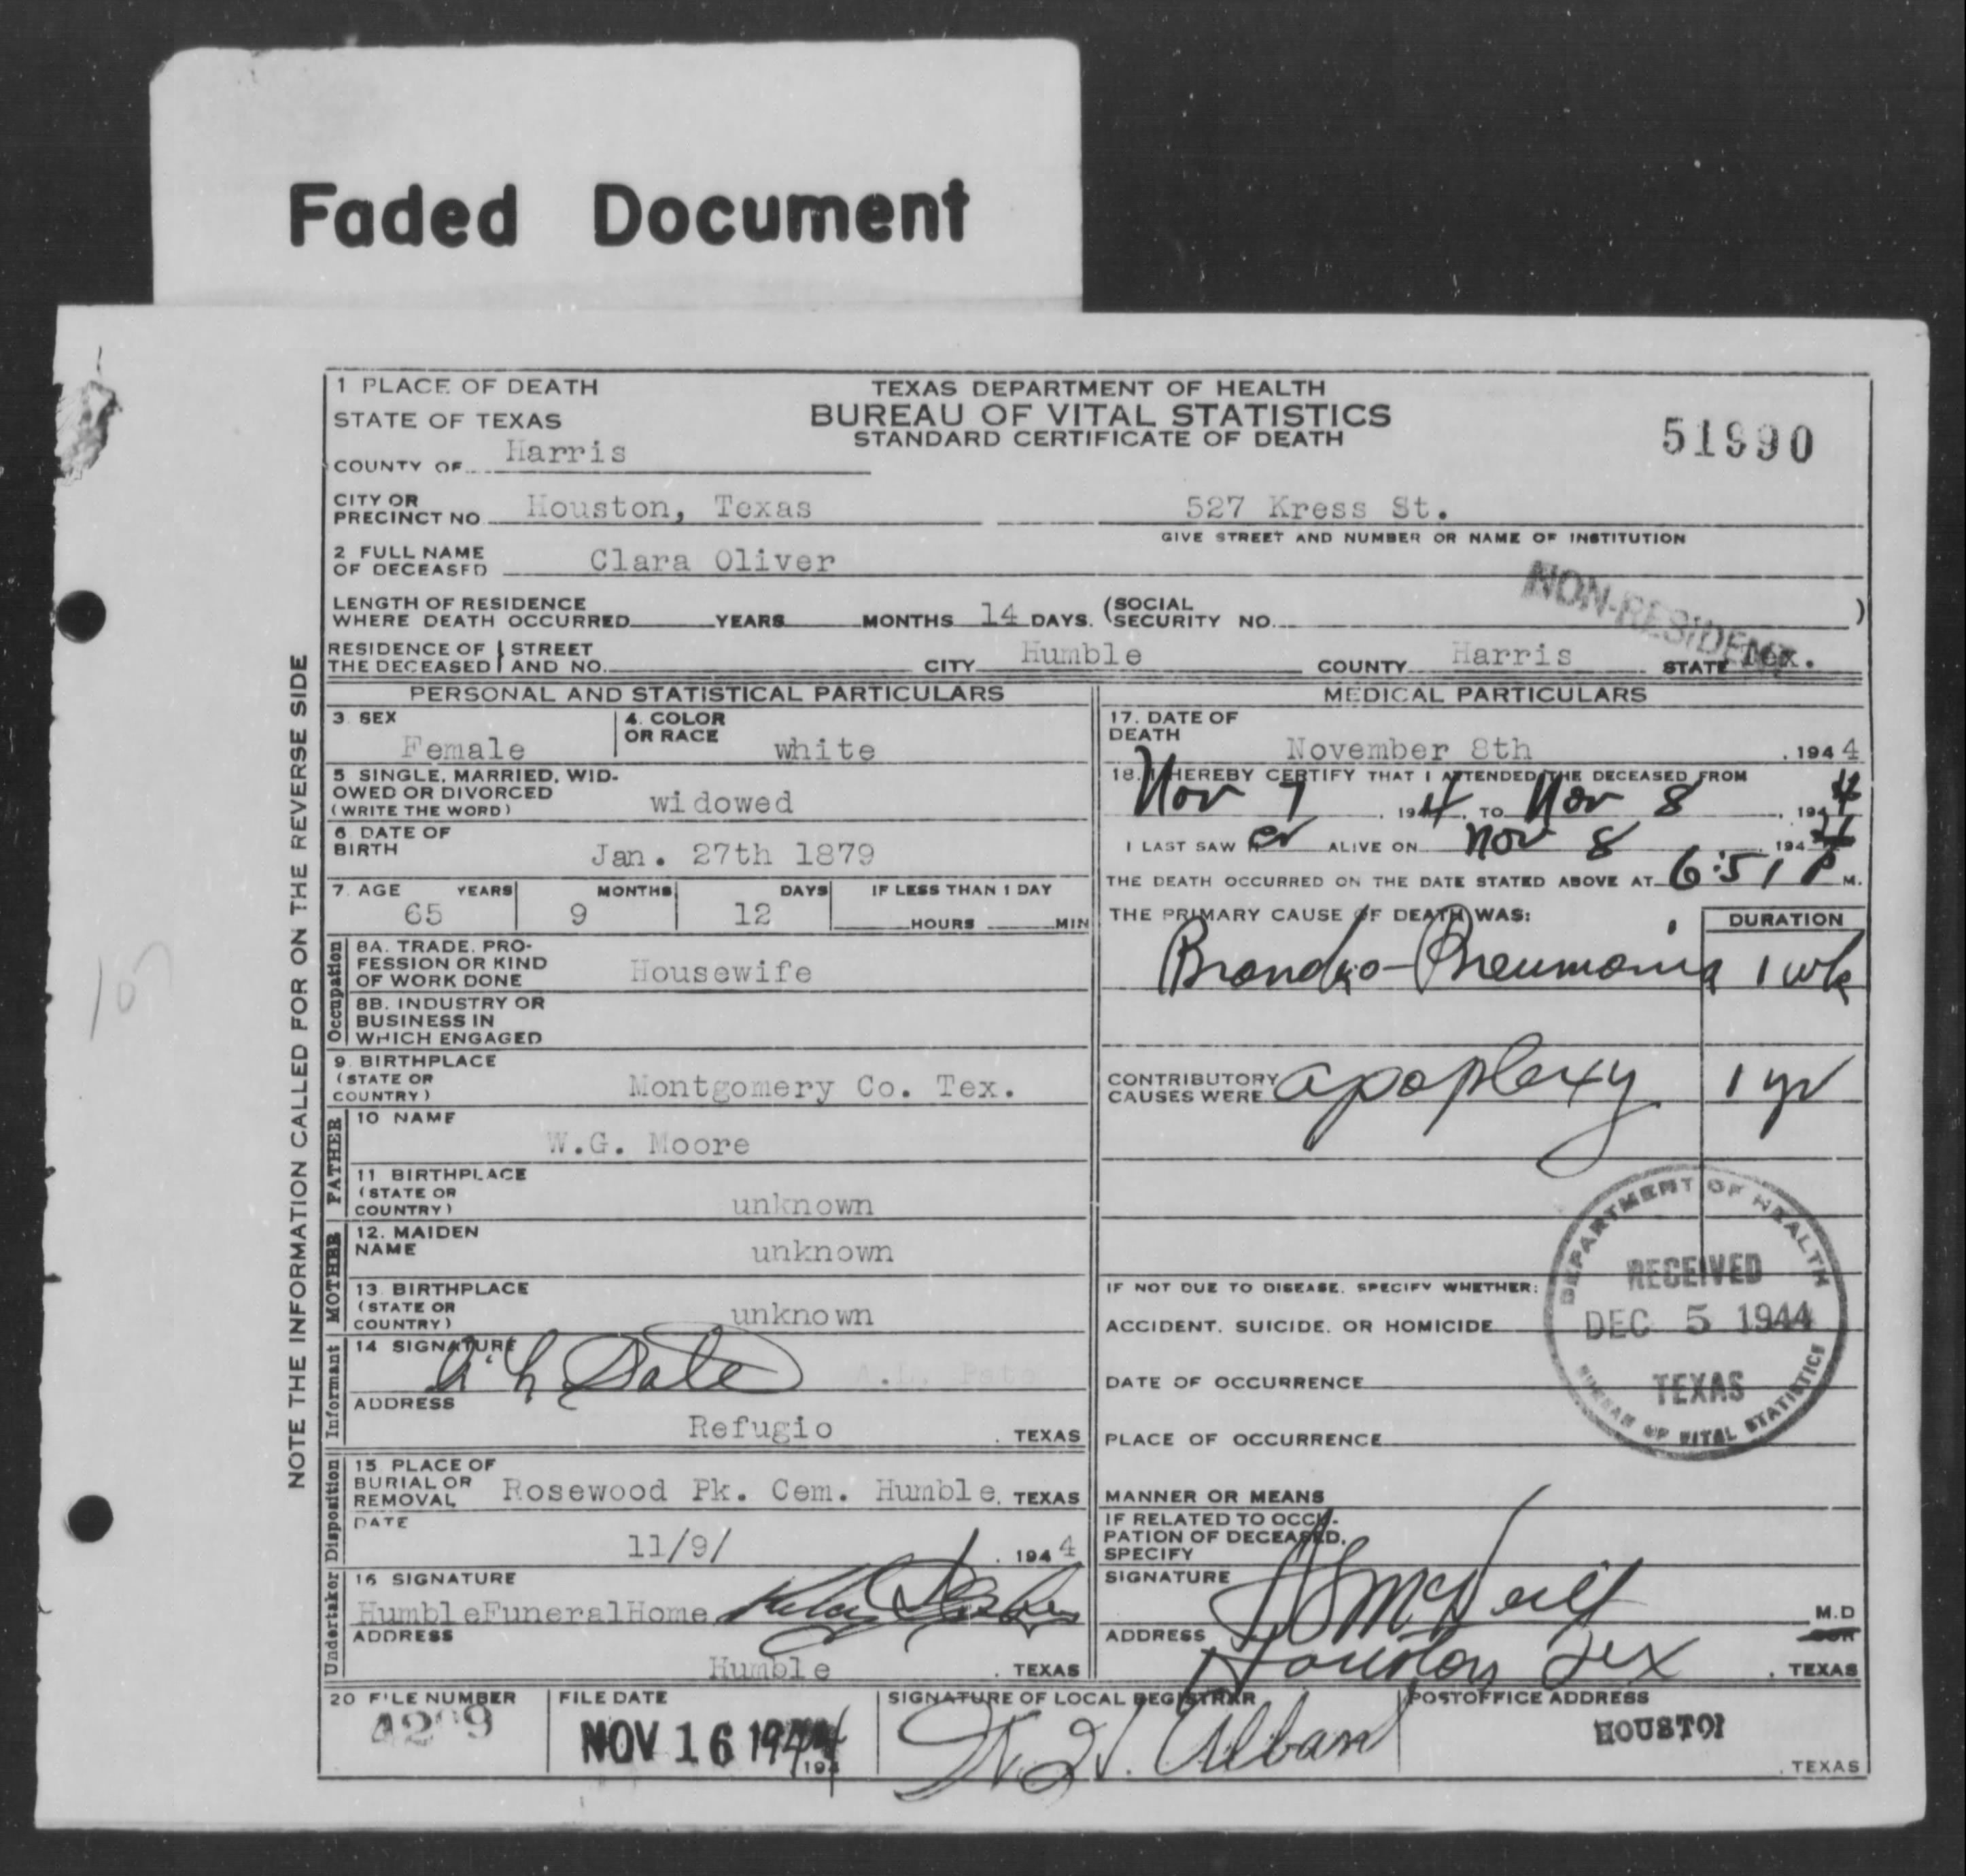 Faded Document
1 PLACE OF DEATH
STATE OF TEXAS
COUNTY OF Harris
TEXAS DEPARTMENT OF HEALTH
BUREAU OF VITAL STATISTICS
STANDARD CERTIFICATE OF DEATH
51990
CITY OR
PRECINCT NO Houston, Texas 527 Kress St.
GIVE STREET AND NUMBER OR NAME OF INSTITUTION
2 FULL NAME
OF DECEASED Clara Oliver
NON-RESIDENT
LENGTH OF RESIDENCE
WHERE DEATH OCCURRED YEARS MONTHS 14 DAYS. (SOCIAL
SECURITY NO. )
RESIDENCE OF STREET
THE DECEASED AND NO. CITY Humble COUNTY Harris STATE Tex.
NOTE THE INFORMATION CALLED FOR ON THE REVERSE SIDE
PERSONAL AND STATISTICAL PARTICULARS
3. SEX Female
4. COLOR
OR RACE white
5 SINGLE, MARRIED, WID-
OWED OR DIVORCED
(WRITE THE WORD) widowed
6. DATE OF
BIRTH Jan. 27th 1879
7. AGE YEARS MONTHS DAYS IF LESS THAN 1 DAY
65 9 12 HOURS MIN
Occupation
8A. TRADE, PRO-
FESSION OR KIND
OF WORK DONE Housewife
8B. INDUSTRY OR
BUSINESS IN
WHICH ENGAGED
9. BIRTHPLACE
(STATE OR
COUNTRY) Montgomery Co. Tex.
FATHER
10 NAME
W.G. Moore
11 BIRTHPLACE
(STATE OR
COUNTRY) unknown
MOTHER
12. MAIDEN
NAME unknown
13. BIRTHPLACE
(STATE OR
COUNTRY) unknown
Informant
14 SIGNATURE
A.L. Pate
ADDRESS
Refugio . TEXAS
Disposition
15. PLACE OF
BURIAL OR
REMOVAL Rosewood Pk. Cem. Humble, TEXAS
DATE
11/9/ . 1944
Undertaker
16 SIGNATURE
HumbleFuneralHome
ADDRESS
Humble . TEXAS
MEDICAL PARTICULARS
17. DATE OF
DEATH November 8th , 1944
18. I HEREBY CERTIFY THAT I ATTENDED THE DECEASED FROM
Nov 7 1944, TO Nov 8, 1944
I LAST SAW her ALIVE ON Nov 8, 1944
THE DEATH OCCURRED ON THE DATE STATED ABOVE AT 6:51 P M.
THE PRIMARY CAUSE OF DEATH WAS: DURATION
Broncho-Pneumonia 1 wk
CONTRIBUTORY
CAUSES WERE apoplexy 1 yr
DEPARTMENT OF HEALTH
RECEIVED
DEC 5 1944
TEXAS
BUREAU OF VITAL STATISTICS
IF NOT DUE TO DISEASE, SPECIFY WHETHER:
ACCIDENT, SUICIDE, OR HOMICIDE
DATE OF OCCURRENCE
PLACE OF OCCURRENCE
MANNER OR MEANS
IF RELATED TO OCCU-
PATION OF DECEASED,
SPECIFY
SIGNATURE McNeill M.D
ADDRESS Houston Tex . TEXAS
20 FILE NUMBER
FILE DATE
NOV 16 1944
194
SIGNATURE OF LOCAL REGISTRAR
Alban
POSTOFFICE ADDRESS
HOUSTON
. TEXAS